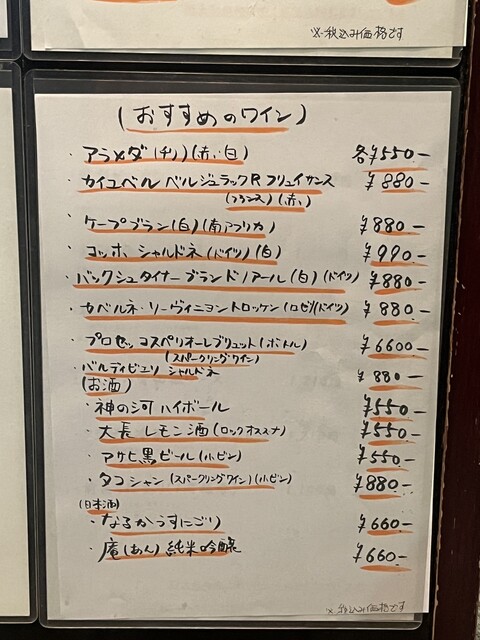 ※税込み価格です
(おすすめのワイン)
・アラメダ(チリ)(赤・白) 各¥550-
・カイユベル ベルジュラックR フリュイサンス ¥880-
(フランス)(赤)
・ケープブラン(白)(南アフリカ) ¥880-
・コッホ シャルドネ(ドイツ)(白) ¥990-
・バックシュタイナーブランドノアール(白)(ドイツ) ¥880-
・カベルネ・リーヴィニヨントロッケン(ロゼ)(ドイツ) ¥880-
・プロセッコスペリオーレブリュット(ボトル) ¥6600-
(スパークリングワイン)
・バルディビエソ シャルドネ ¥880-
(お酒)
・神の河ハイボール ¥550-
・大長レモン酒(ロックオススメ) ¥550-
・アサヒ黒ビール(小ビン) ¥550-
・タコシャン(スパークリングワイン)(小ビン) ¥880-
(日本酒)
・なるかうすにごり ¥660-
・庵(あん)純米吟醸 ¥660-
※税込み価格です